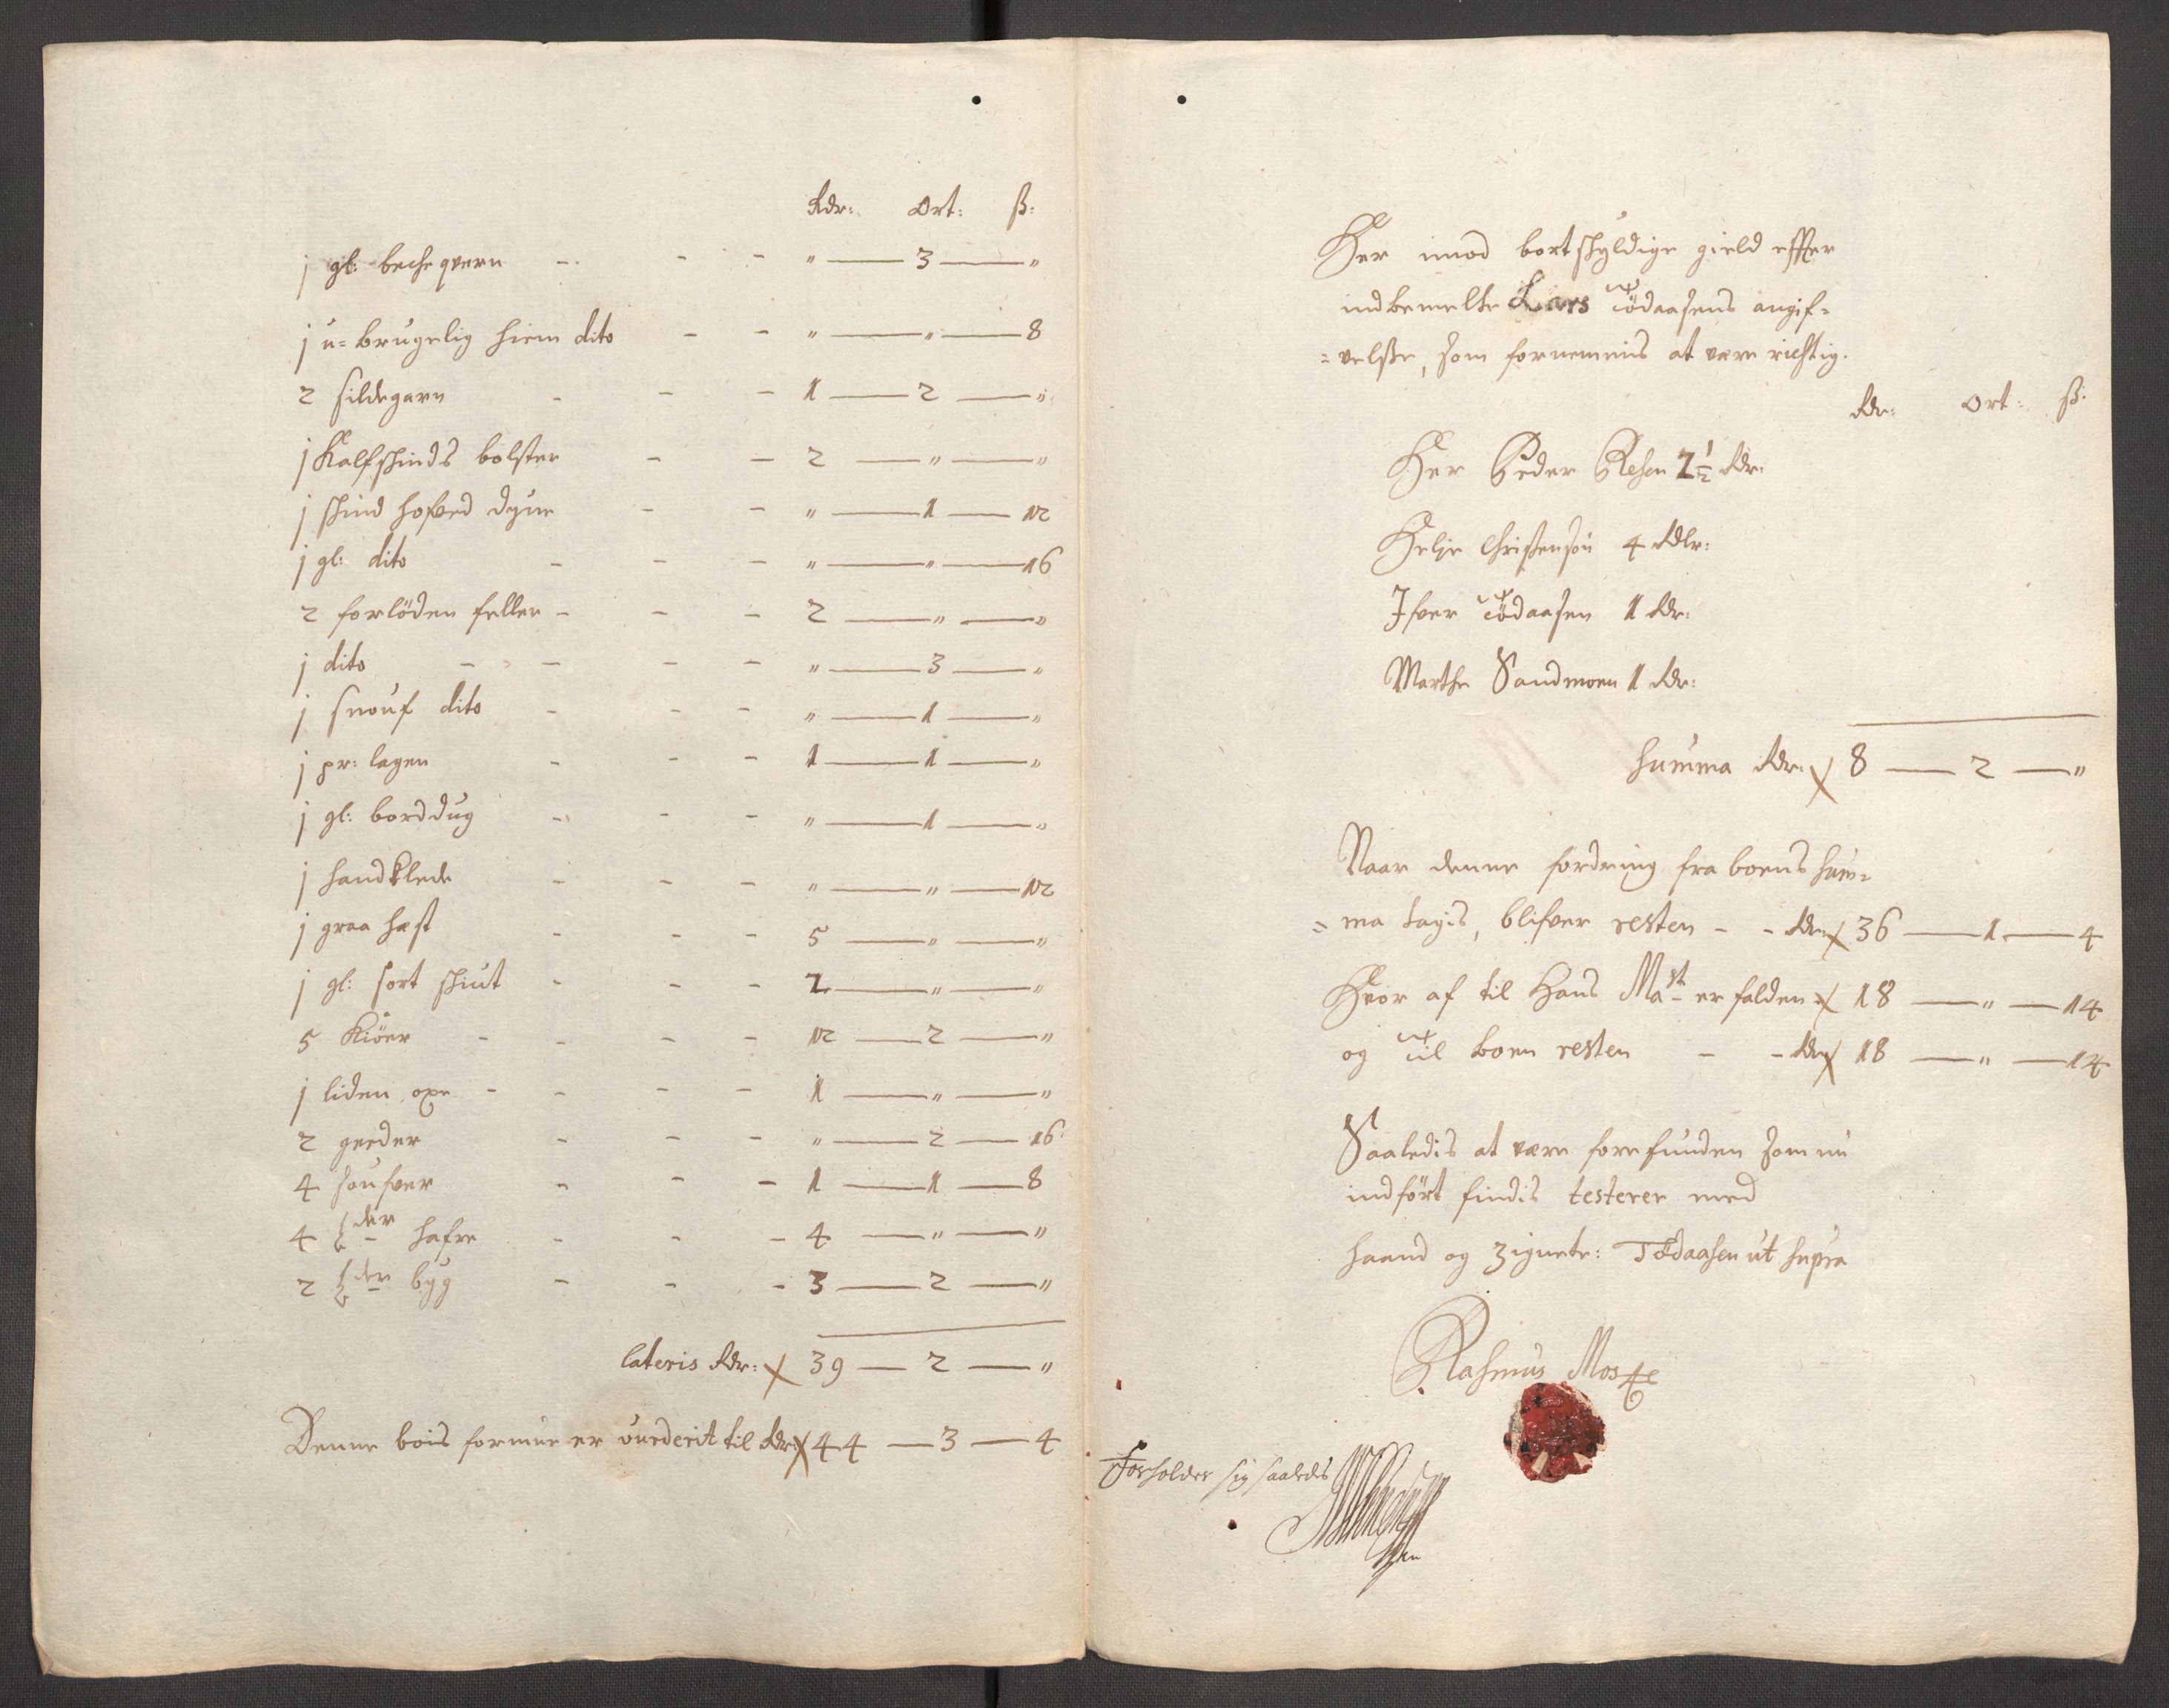 Rdr: Ort: ß:
j gl: beche qvern - - - " — 3 — "
j u=brugelig hiem dito - - " — " — 8
2 sildegarn - - - 1 — 2 — "
j Kalfskinds bolster - - 2 — " — "
j skind hofved dyne - - " — 1 — 12
j gl: dito - - - " — " — 16
2 forlöden feller - - - 2 — " — "
j dito - - - - " — 3 — "
j snouf dito - - - " — 1 — "
j pr: lagen - - - 1 — 1 — "
j gl: borddug - - - " — 1 — "
j handklede - - - " — " — 12
j graa hest - - - 5 — " — "
j gl: sort skiut - - - 2 — " — "
5 Kiöer - - - - 12 — 2 — "
j liden oxe - - - - 1 — " — "
2 geeder - - - " — 2 — 16
4 soufver - - - 1 — 1 — 8
4 tder hafre - - - 4 — " — "
2 tder byg - - - 3 — 2 — "
lateris Rdr: 39 — 2 — "
Denne bois formue er vurderit til Rdr: 44 — 3 — 4
Her imod bortskyldige gield effter
indbemelte Lars Tödaasens angif=
=velsse, som fornemmis at være richtig.
Rdr: Ort: ß:
Her Peder Resen 2 1/2 Rdr:
Helje Christensøn 4 Rdlr:
Ifver Tödaasen 1 Rdr:
Marthe Sandmoen 1 Rdr:
Summa Rdr: 8 — 2 — "
Naar denne fordring fra boens sum=
=ma tagis, blifver resten - - Rdr: 36 — 1 — 4
Hvor af til Hans Mast er falden 18 — " — 14
og til boen resten - - Rdr 18 — " — 14
Saaledis at være forefunden som nu
indført findis testerer med
haand og Zignete: Tödaasen ut supra
Rasmus Mos
Forholder sig saaledis